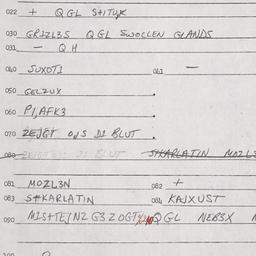 022 + QGL S+ITUK
030 GRIZL3S QGL SWOLLEN GLANDS
031 - QH
040 SUXOTI 041 -
050 GELZUX
060 P1, AFK3
070 ZEJGT OUS DI BLUT
080 S+KARLATIN MOZL3
081 MOZL3N 082 +
083 S+KARLATIN 084 KAJXUST
090 MIS+TEIN2 G3ZOGT QGL NEB3X
100